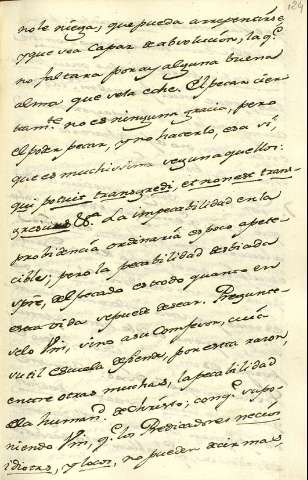 184
no le niega; que pueda arrepentirse
y que sea capaz de absolucion, la q.e
no faltarà por ay alguna buena
alma que se la eche. El pecar cier
tam.te no es ninguna gracia, pero
el poder pecar, y no hacerlo, esa sí,
que es muchissima segun aquello:
qui potuit transgredi, et non est trans-
gressus &c. La impecabilidad en la
probidencia ordinaria es poco apete-
cible; pero la pecabilidad
del pecado es todo quanto en
esta vida se puede desear. Pregunte-
selo Vm, sino a su Comfesor, cuia
sutil escuela defiende, por esta razon,
entre otras muchas, la pecabilidad
de la human.d de Christo; con q.e supo-
niendo Vm, q.e los Predicadores necios
idiotas, y locos, no pueden decir mas